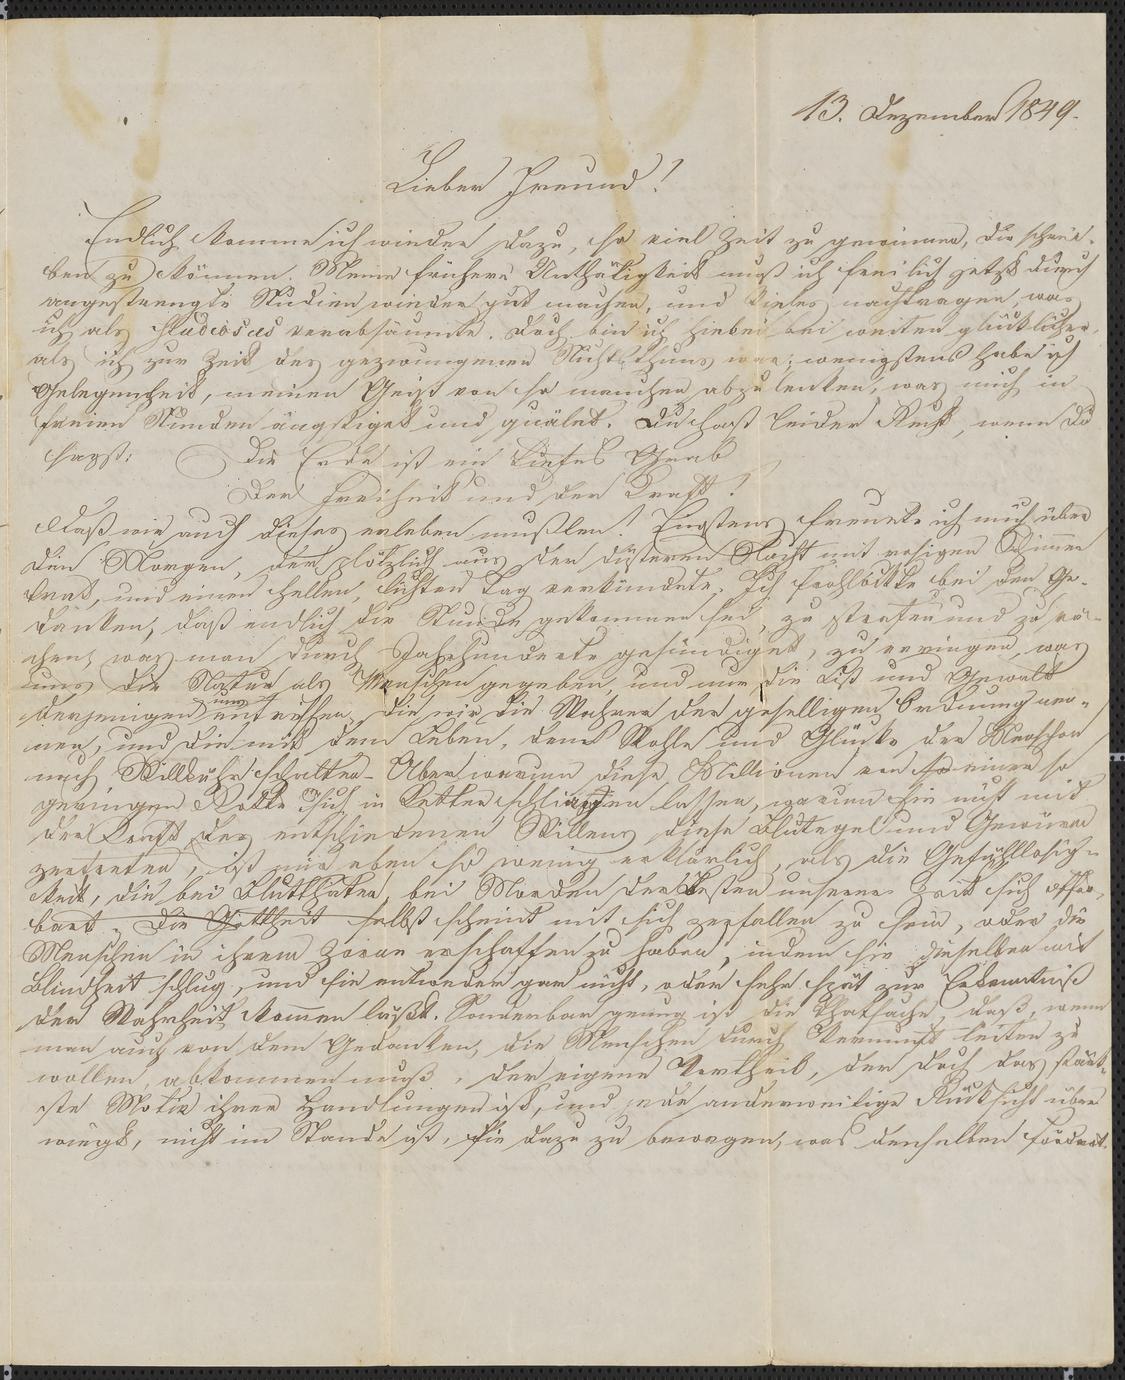 13. Dezember 1849.
Lieber Freund!
Endlich komme ich wieder dazu, so viel Zeit zu gewinnen, Dir schrei-
ben zu können. Meine frühere Unthätigkeit muß ich freilich jetzt durch
angestrengte Studien wieder gut machen, und Vieles nachtragen, was
ich als Studiosus verabsäumte. Doch bin ich hiebei bei weiten glücklicher,
als ich zur Zeit des gezwungenen Nichtsthuns war; wenigstens habe ich
Gelegenheit, meinen Geist von so manchen abzulenken, was mich in
freien Stunden ängstiget und quälet. Du hast leider Recht, wenn Du
sagst: Die Erde ist ein tiefes Grab
Der Freiheit und der Kraft!
Daß wir auch dieses erleben mußten! Längstens freuete ich mich über
den Morgen, der plötzlich aus der düsteren Nacht mit rosigen Schimmer
trat, und einen hellen, lichten Tag verkündete. Ich frohlockte bei den Ge-
danken, daß endlich die Stunde gekommen sei, zu strafen und zu rä-
chen, was man durch Jahrhunderte gesündiget, zu erringen, was
uns die Natur als Menschen gegeben, und nur die List und Gewalt
derjenigen uns entrissen, die wir die Wahrer der geselligen Ordnung nen-
nen, und die mit dem Leben, dem Wohle und Glücke der Menschen
nach Willkühr schalten. Aber warum diese Millionen von einer so
geringen Rotte sich in Ketten schlagen lassen, warum sie nicht mit
der Kraft des entschiedenen Willens diese Blutegel und Gewürm
zertreten, ist mir eben so wenig erklärlich, als die Gefühllosig-
keit, die bei Blutthaten, bei Morden der Besten unserer Zeit sich offen-
bart. Die Gottheit selbst scheint mit sich zerfallen zu sein, oder die
Menschen in ihrem Zorne erschaffen zu haben, indem sie dieselben mit
Blindheit schlug, und sie entweder gar nicht, oder sehr spät zur Erkenntniß
der Wahrheit kommen läßt. Sonderbar genug ist die Thatsache, daß, wenn
man auch von dem Gedanken, die Menschen durch Vernunft leiten zu
wollen, abkommen muß, der eigene Vortheil, der doch das stärk-
ste Motiv ihrer Handlungen ist, und jede anderweitige Rücksicht über
wiegt, nicht im Stande ist, sie dazu zu bewegen, was denselben fördert.